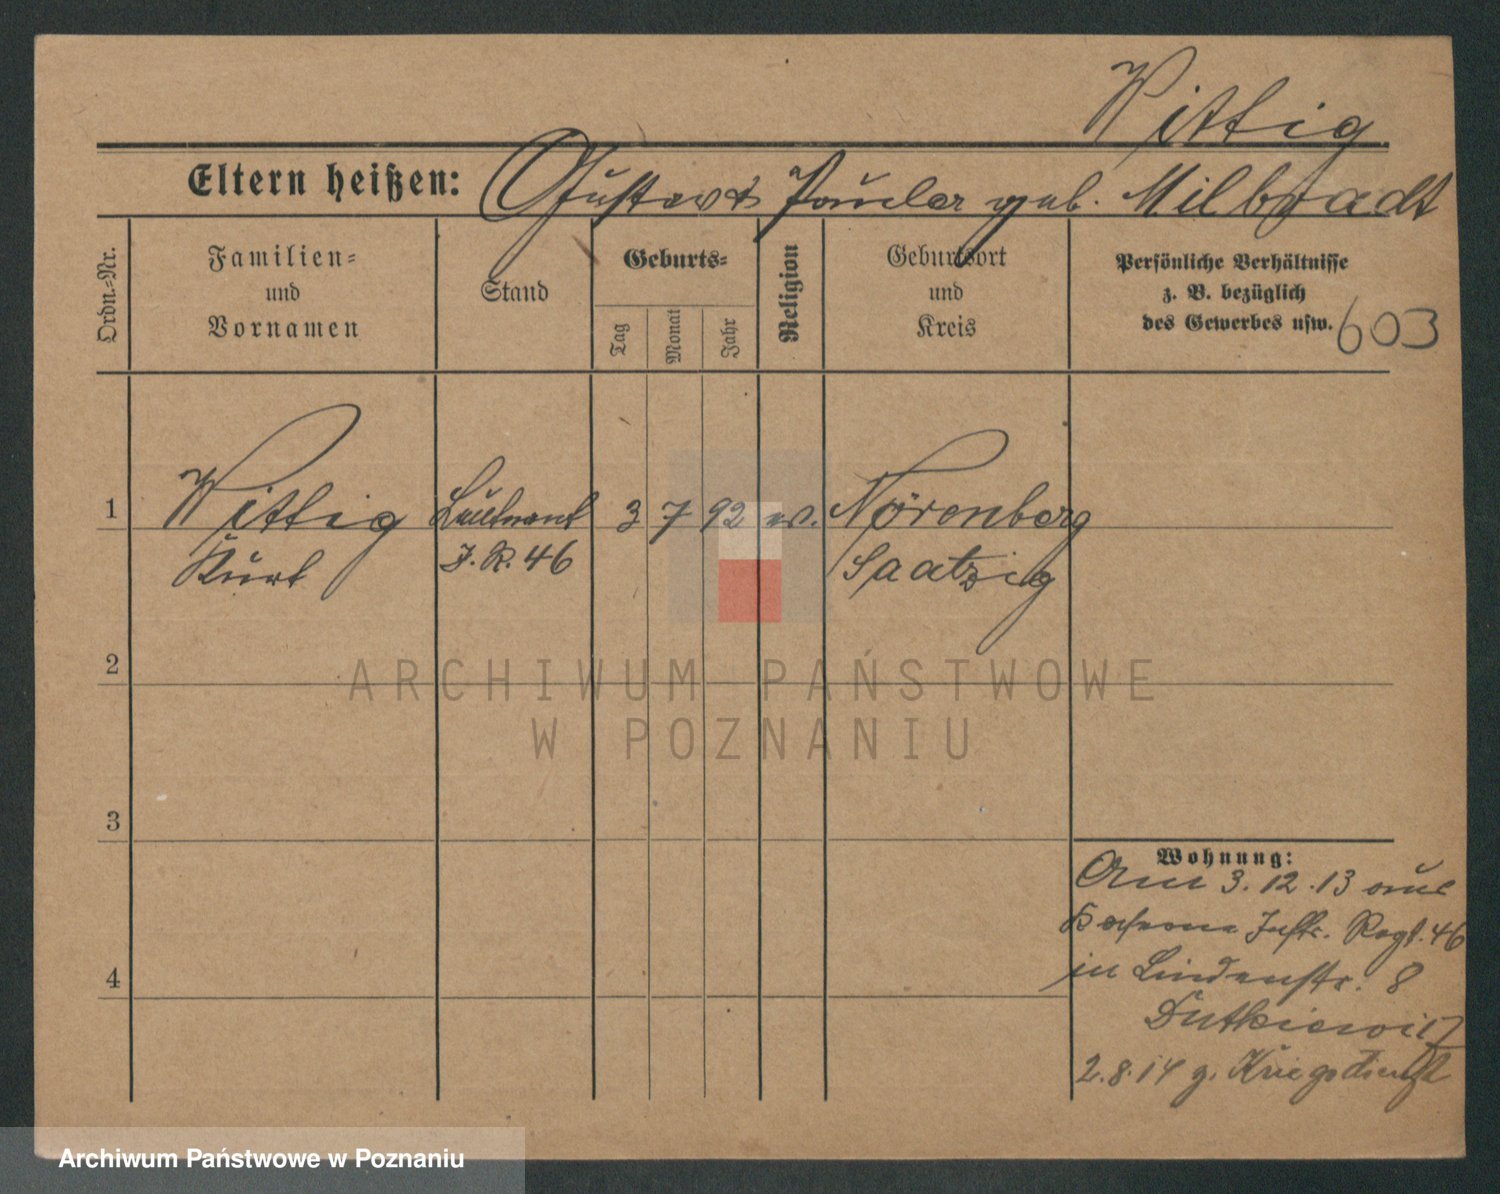 Wittig
Eltern heißen: Gustav & Paula geb. Milbradt
Ordn.-Nr.
Familien=
und
Vornamen
Stand
Geburts=
Tag
Monat
Jahr
Religion
Geburtsort
und
Kreis
Persönliche Verhältnisse
z. B. bezüglich
des Gewerbes usw.
603
1 Wittig Leutnant 3 7 92 ev. Nörenberg
Kurt J. R. 46 Saatzig
2
3
4
Wohnung:
Am 3.12.13 aus
Kaserne Inftr. Regt. 46
in Lindenstr. 8
Dutkiewitz
2.8.14 z. Kriegsdienst
ARCHIWUM PAŃSTWOWE
W POZNANIU
Archiwum Państwowe w Poznaniu